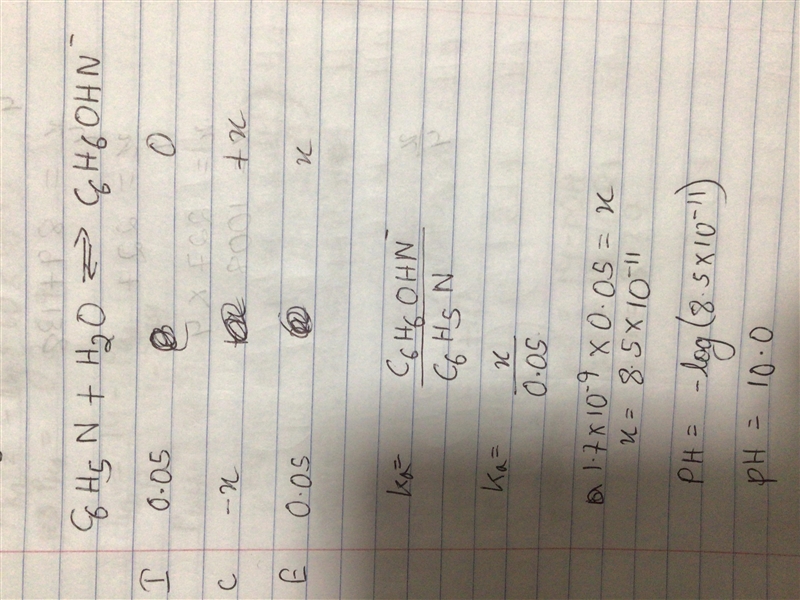 C6H5N + H2O ⇌ C6H6OHN⁻
I 0.05 0
C -x +x
E 0.05 x
Ka= C6H6OHN⁻
C6H5N
Ka= x
0.05
1.7×10⁻⁹ × 0.05 = x
x = 8.5×10⁻¹¹
PH = -log(8.5×10⁻¹¹)
pH = 10.0